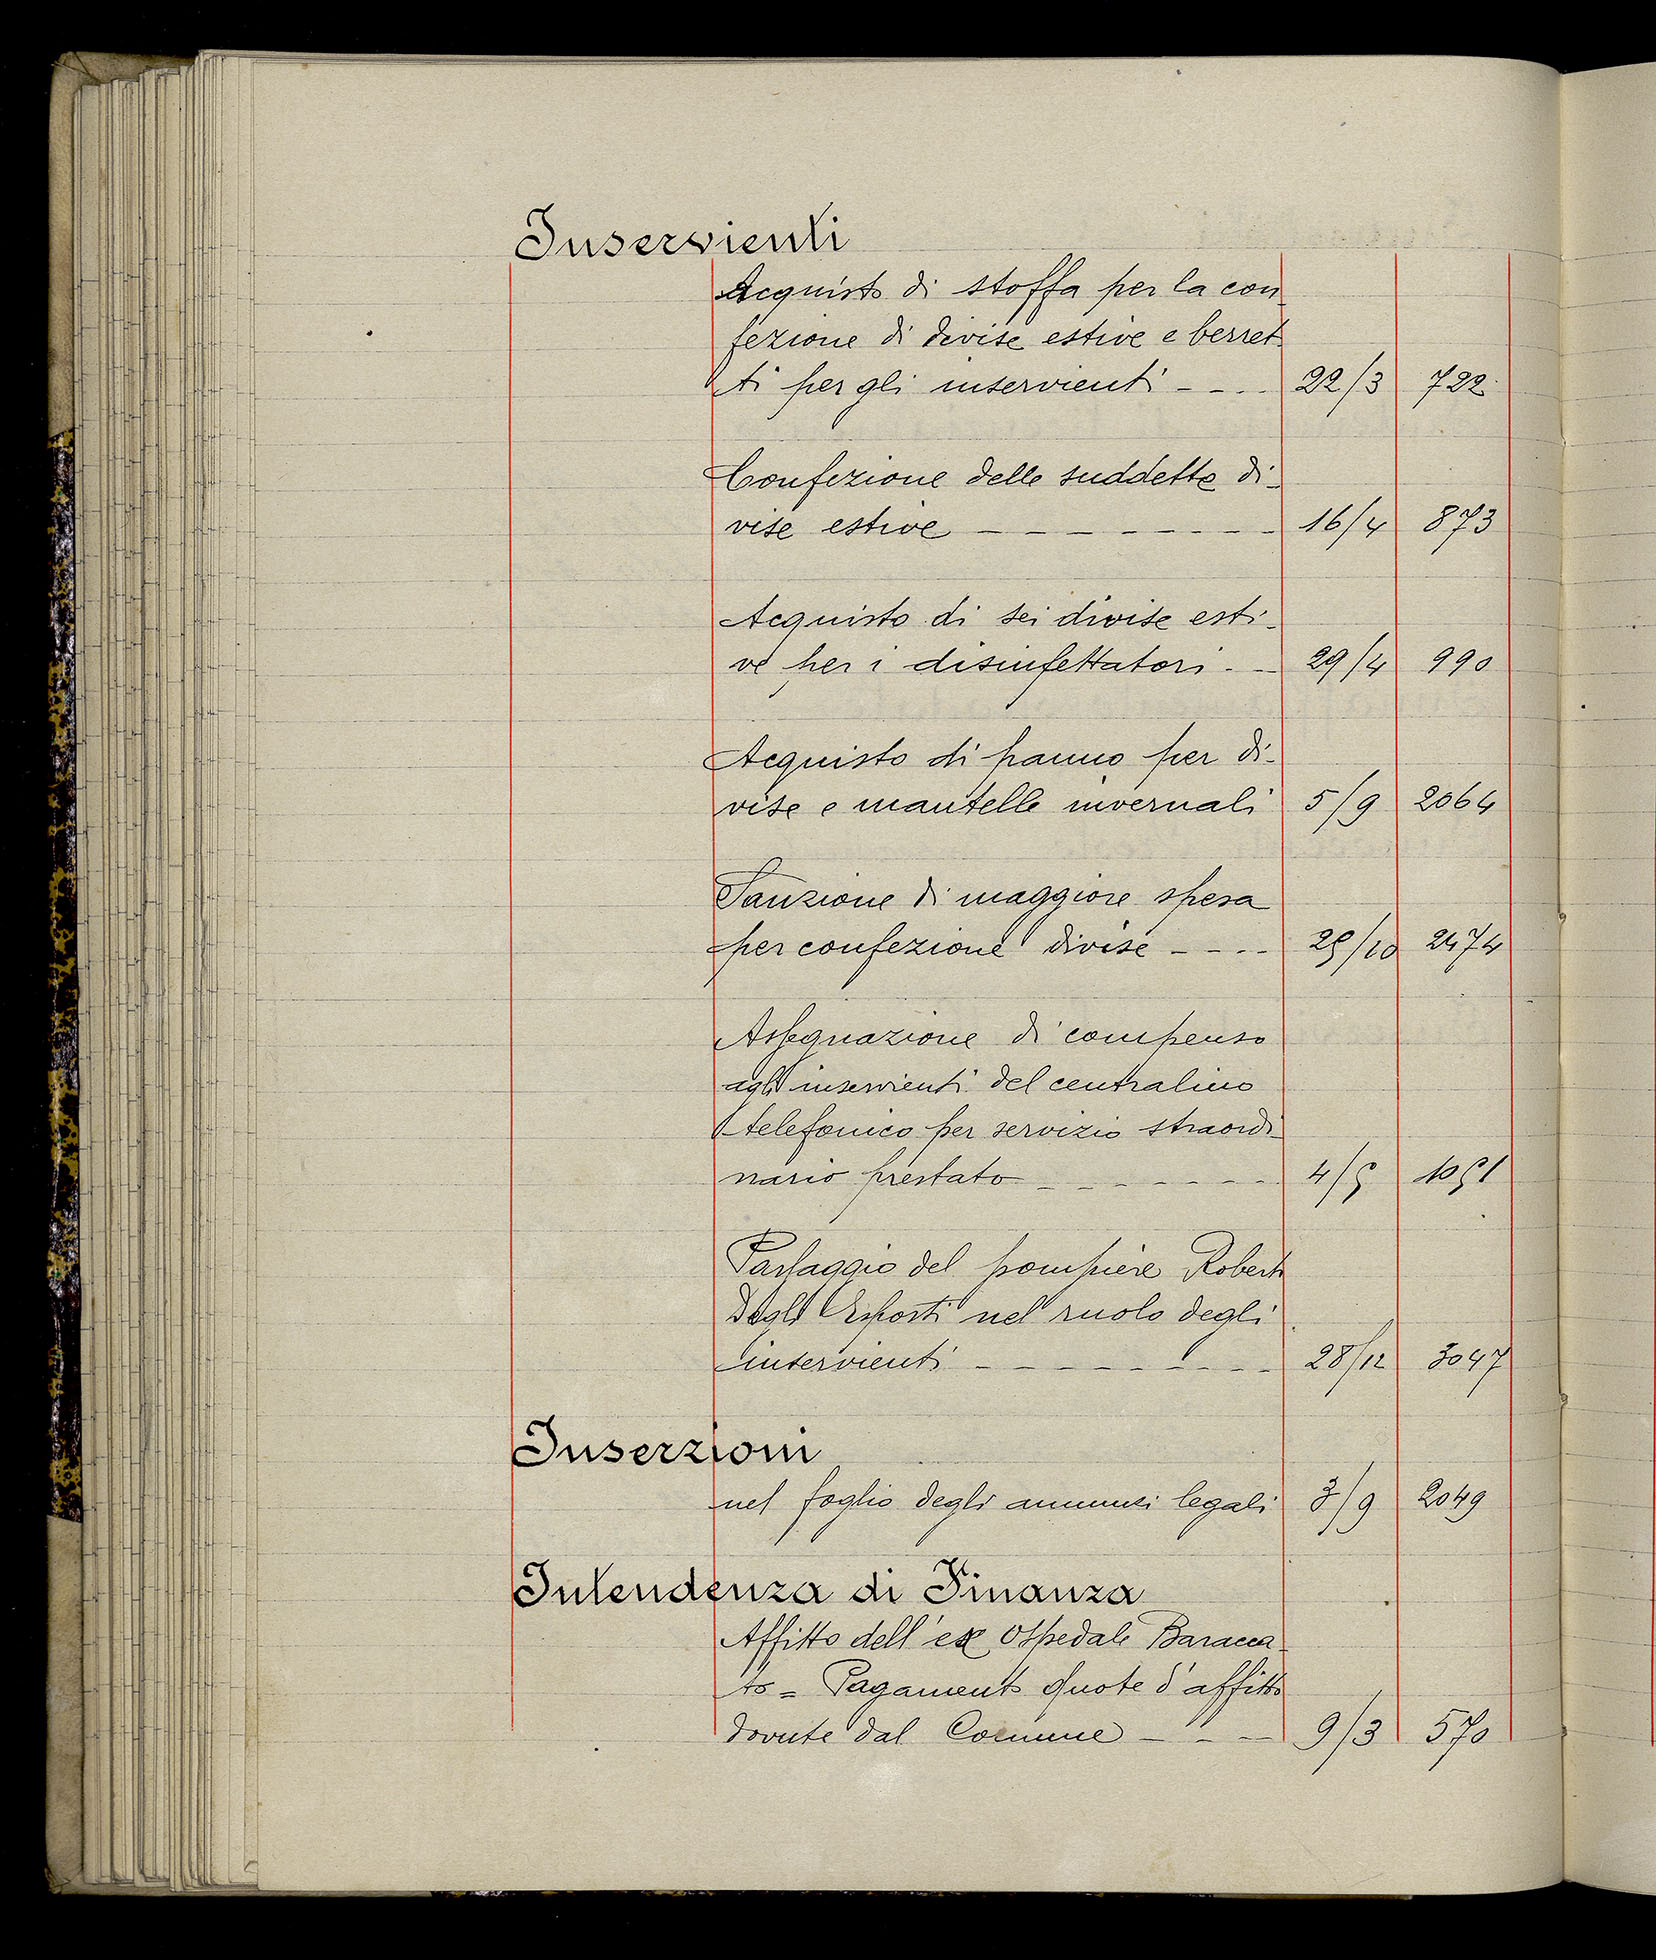 Inservienti
Acquisto di stoffa per la con_
fezione di divise estive e berret_
ti per gli inservienti - - - - 22/3 722
Confezione delle suddette di_
vise estive - - - - - - - 16/4 873
Acquisto di sei divise esti_
ve per i disinfettatori - - 29/4 990
Acquisto di panno per di_
vise e mantelle invernali 5/9 2064
Sanzione di maggiore spesa
per confezione divise - - - - 25/10 2474
Assegnazione di compenso
agli inservienti del centralino
telefonico per servizio straordi_
nario prestato - - - - - - 4/5 1051
Passaggio del pompiere Roberto
Degli Esposti nel ruolo degli
inservienti - - - - - - - 28/12 3047
Inserzioni
nel foglio degli annunzi legali 3/9 2049
Intendenza di Finanza
Affitto dell'ex Ospedale Baracca_
to = Pagamento quote d'affitto
dovute dal Comune - - - - 9/3 570